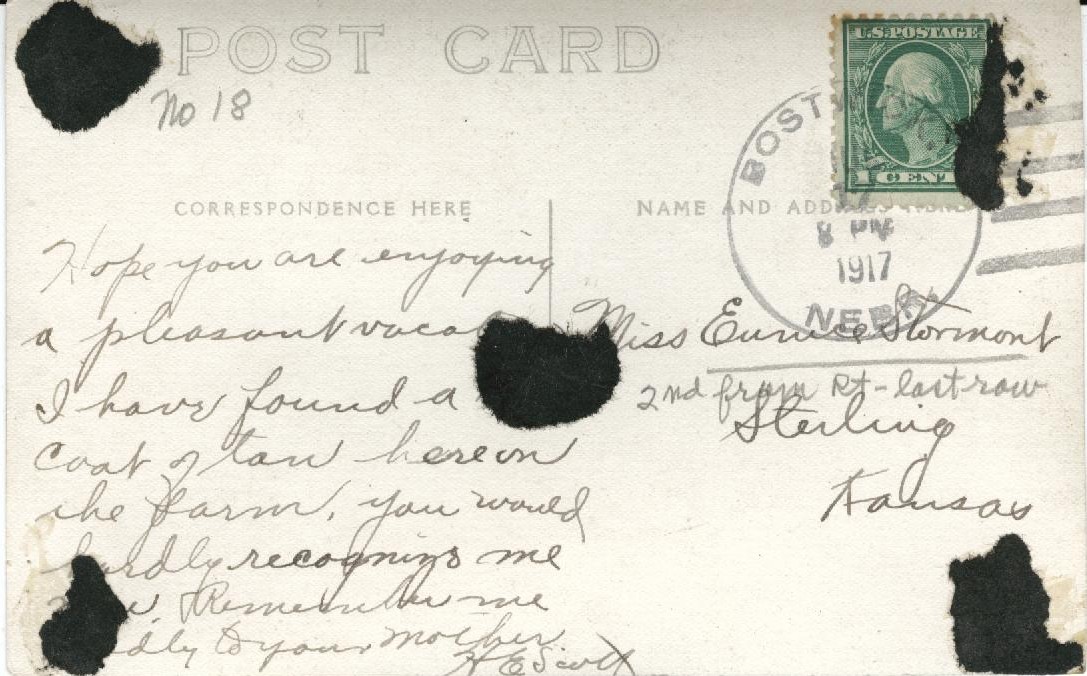 POST CARD
No 18
U.S. POSTAGE
1 CENT
8 PM
1917
NEBR.
CORRESPONDENCE HERE
NAME AND ADDRESS HERE
Hope you are enjoying
a pleasant vaca
I have found a
coat of tan here on
the farm, you would
hardly recognize me
Remember me
dly to your mother
H E Scott
Miss Eunice Stormont
2nd from Rt - last row
Sterling
Kansas